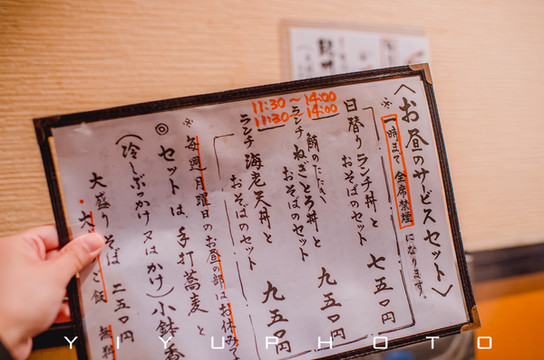 〈お昼のサービスセット〉
※一時まで全席禁煙になります。
11:30～14:00
11:30～14:00
日替りランチ丼と
おそばのセット 七五〇円
ランチねぎとろ丼と
おそばのセット 九五〇円
ランチ海老天丼と
おそばのセット 九五〇円
※毎週月曜日のお昼の部はお休み
◎セットは、手打蕎麦と
(冷しぶっかけ又はかけ)小鉢
大盛りそば 二五〇円
無料
YIYUPHOTO